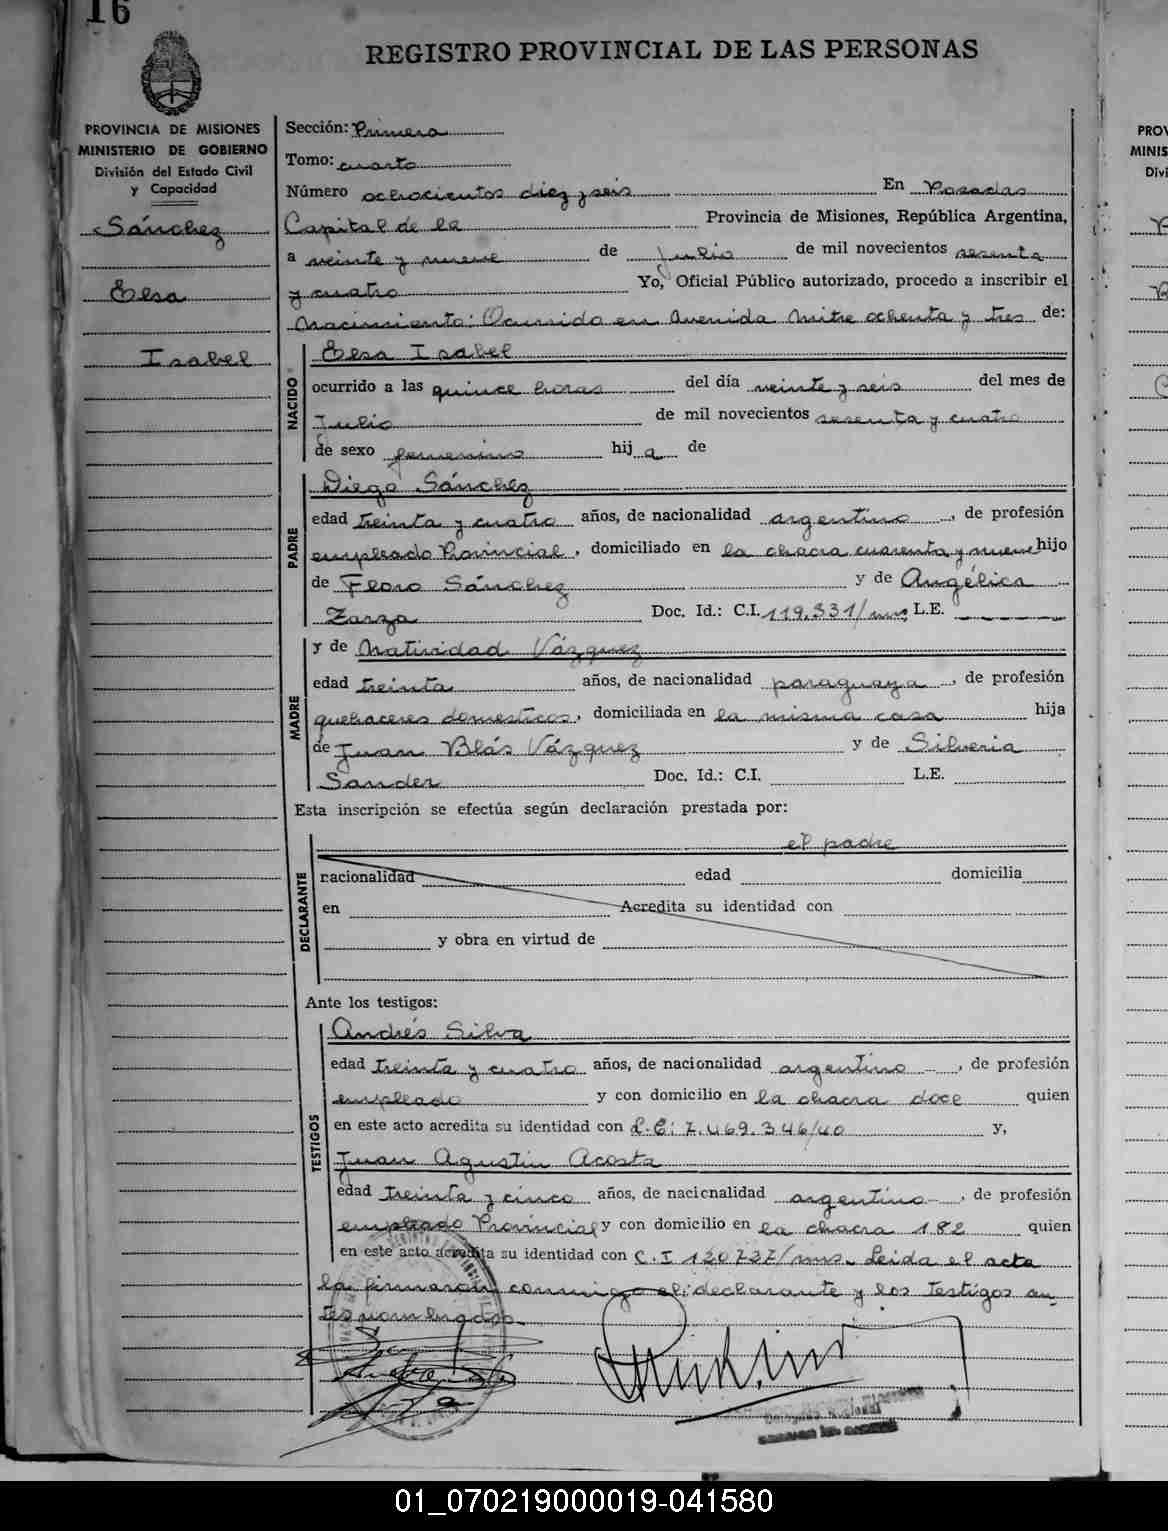 16
REGISTRO PROVINCIAL DE LAS PERSONAS
PROVINCIA DE MISIONES
MINISTERIO DE GOBIERNO
División del Estado Civil
y Capacidad
Sánchez
Elsa
Isabel
Sección: Primera
Tomo: cuarto
Número ochocientos diez y seis En Posadas
Capital de la Provincia de Misiones, República Argentina,
a veinte y nueve de Julio de mil novecientos sesenta
y cuatro Yo, Oficial Público autorizado, procedo a inscribir el
Nacimiento: Ocurrido en Avenida Mitre ochenta y tres de:
NACIDO
Elsa Isabel
ocurrido a las quince horas del día veinte y seis del mes de
Julio de mil novecientos sesenta y cuatro
de sexo femenino hij a de
PADRE
Diego Sánchez
edad treinta y cuatro años, de nacionalidad argentino, de profesión
empleado Provincial, domiciliado en la chacra cuarenta y nueve hijo
de Floro Sánchez y de Angélica
Zarza Doc. Id.: C.I. 119.331/mns, L.E.
MADRE
y de Natividad Vázquez
edad treinta años, de nacionalidad paraguaya, de profesión
quehaceres domesticos, domiciliada en la misma casa hija
de Juan Blás Vázquez y de Silveria
Sander Doc. Id.: C.I. L.E.
Esta inscripción se efectúa según declaración prestada por:
DECLARANTE
el padre
nacionalidad edad domicilia
en Acredita su identidad con
y obra en virtud de
Ante los testigos:
TESTIGOS
Andrés Silva
edad treinta y cuatro años, de nacionalidad argentino, de profesión
empleado y con domicilio en la chacra doce quien
en este acto acredita su identidad con L.E: 7.469.346/40 y,
Juan Agustin Acosta
edad treinta y cinco años, de nacionalidad argentino, de profesión
empleado Provincial y con domicilio en la chacra 182 quien
en este acto acredita su identidad con C.I 120737/mns. Leida el acta
la firmaron conmigo el declarante y los testigos an_
tes nombrados.
PROV
MINIS
Divi
01_070219000019-041580